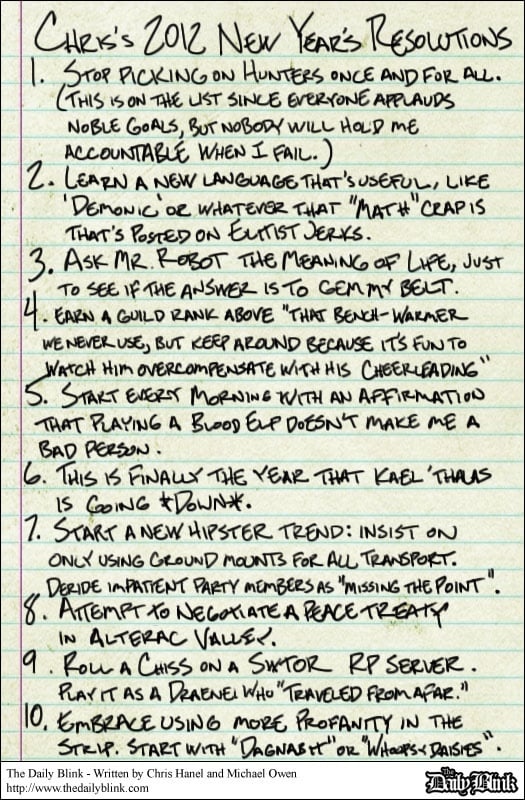 Chris's 2012 New Year's Resolutions
1. Stop picking on Hunters once and for all.
(This is on the list since everyone applauds
noble goals, but nobody will hold me
accountable when I fail.)
2. Learn a new language that's useful, like
'Demonic' or whatever that "Math" crap is
that's posted on Elitist Jerks.
3. Ask Mr. Robot the Meaning of Life, just
to see if the answer is to gem my belt.
4. Earn a guild rank above "that bench-warmer
we never use, but keep around because it's fun to
watch him overcompensate with his cheerleading"
5. Start every morning with an affirmation
that playing a Blood Elf doesn't make me a
bad person.
6. This is finally the year that Kael'thas
is going *down*.
7. Start a new hipster trend: insist on
only using ground mounts for all transport.
Deride impatient party members as "missing the point".
8. Attempt to negotiate a peace treaty
in Alterac Valley.
9. Roll a Chiss on a SWTOR RP server.
Play it as a Draenei who "traveled from afar."
10. Embrace using more profanity in the
strip. Start with "Dagnabit" or "Whoopsy daisies".
The Daily Blink - Written by Chris Hanel and Michael Owen
http://www.thedailyblink.com
The Daily Blink